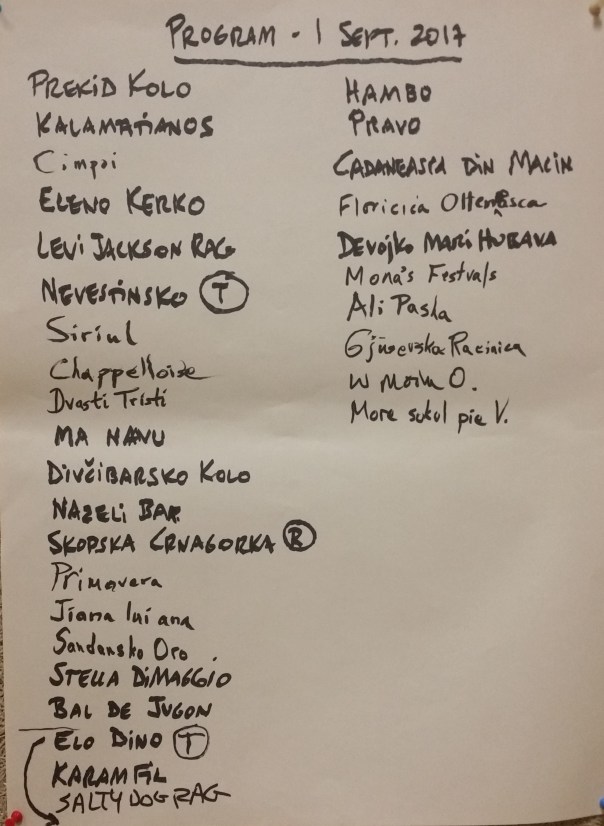 PROGRAM - 1 SEPT. 2017
PREKID KOLO
KALAMATIANOS
Cimpoi
ELENO KERKO
LEVI JACKSON RAG
NEVESTINSKO T
Siriul
Chappelloise
Dvasti Tristi
MA NAVU
DIVČIBARSKO KOLO
NAZELI BAR
SKOPSKA CRNAGORKA R
Primavera
Jiana lui ana
Sandansko Oro.
STELLA DIMAGGIO
BAL DE JUGON
ELO DINO T
KARAMFIL
SALTY DOG RAG
HAMBO
PRAVO
CADANEASCA DIN MACIN
Floricica Oltenească
DEVOJKO MARI HUBAVA
Mona's Festvals
Ali Pasha
Racinica
W O.
More sukol pie V.